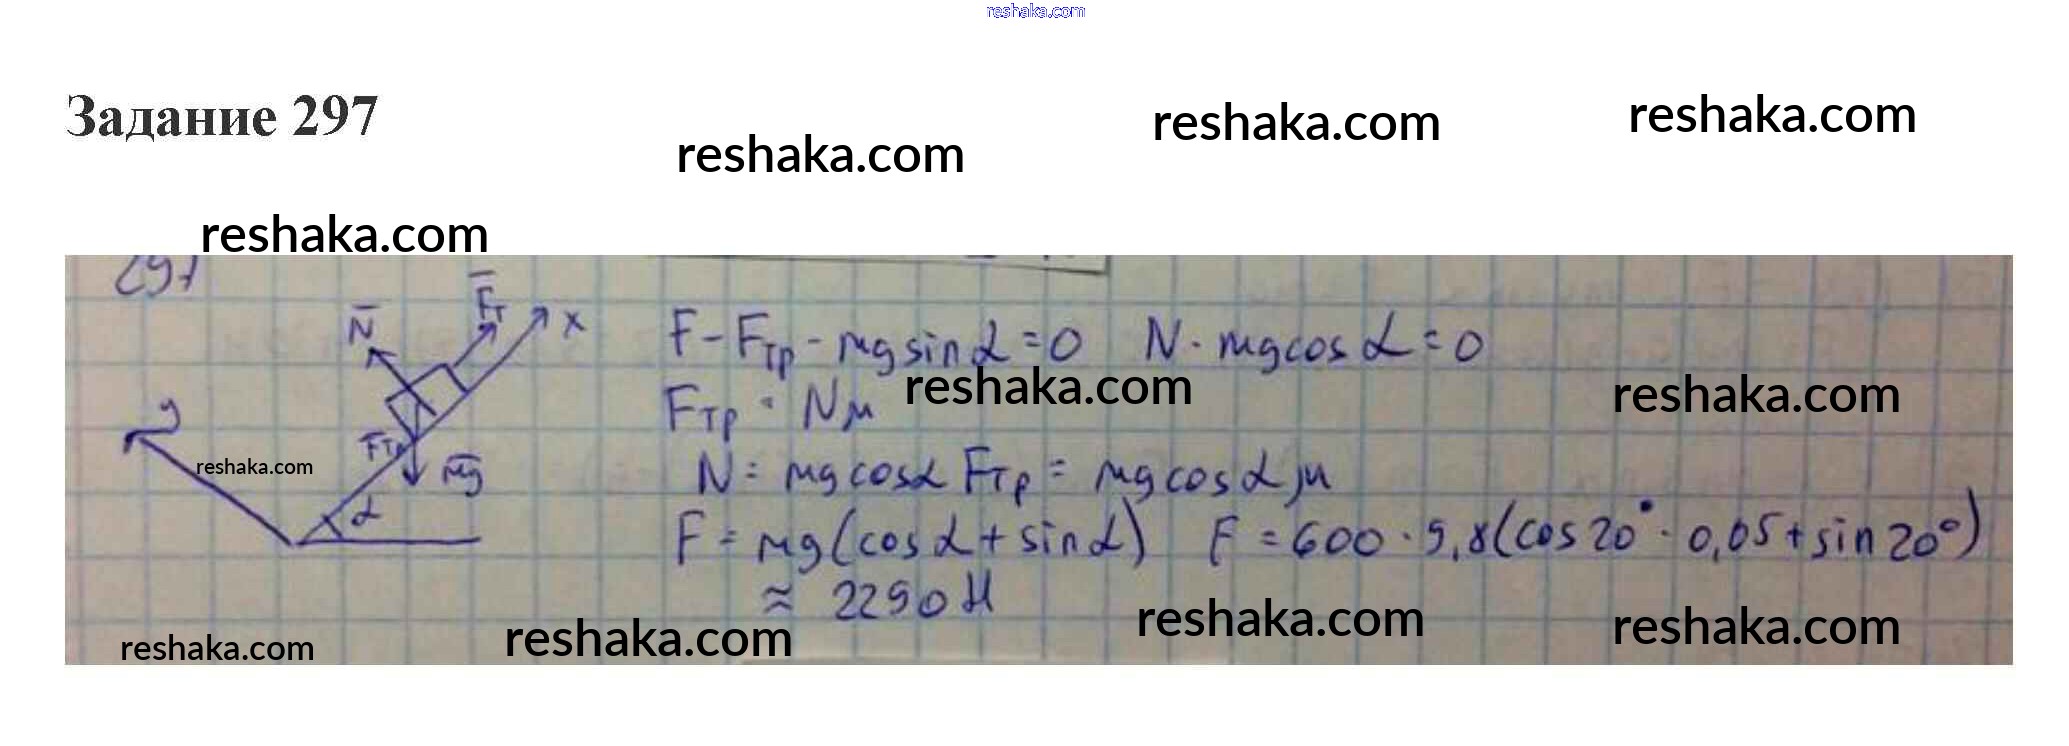 reshaka.com
Задание 297
reshaka.com
reshaka.com
reshaka.com
reshaka.com
297
N̅ F̅т x
y F̅тр m̅g α
F - Fтр - mg sin α = 0 N - mg cos α = 0
reshaka.com reshaka.com
Fтр = Nμ
reshaka.com
N = mg cos α Fтр = mg cos α μ
F = mg (cos α + sin α) F = 600 · 9,8 (cos 20° · 0,05 + sin 20°)
≈ 2290 Н
reshaka.com reshaka.com reshaka.com reshaka.com